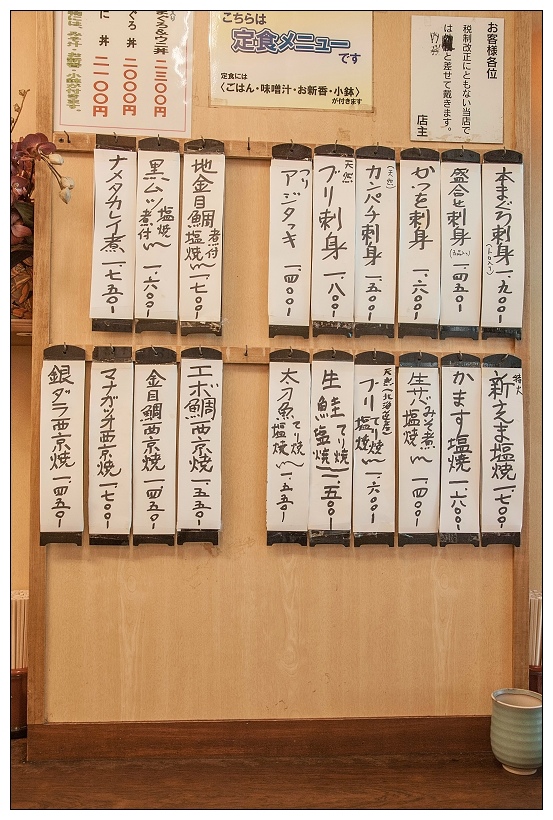 お客様各位
税制改正にともない当店で
は
と差せて戴きます。
店主
こちらは
定食メニューです
定食には
〈ごはん・味噌汁・お新香・小鉢〉
が付きます
まぐろ&ウニ丼 二三〇〇円
ぐろ丼 二〇〇〇円
に丼 二一〇〇円
物には、みそ汁・お新香・小鉢が付きます。
本まぐろ刺身 一、九〇〇一
盛合せ刺身 一、四五〇一
かつを刺身 一、六〇〇一
(天然)カンパチ刺身 一、五〇〇一
天然ブリ刺身 一、八〇〇一
つりアジタタキ 一、四〇〇一
地金目鯛煮付塩焼 一、七〇〇一
黒ムツ塩焼煮付 一、六〇〇一
ナメタカレイ煮 一、七五〇一
特大新さんま塩焼 一、七〇〇一
かます塩焼 一、六〇〇一
生サバみそ煮塩焼 一、四〇〇一
天然(北海道産)ブリてり焼塩焼 一、六〇〇一
生鮭てり焼塩焼 一、五〇〇一
太刀魚てり焼塩焼 一、五五〇一
エボ鯛西京焼 一、五五〇一
金目鯛西京焼 一、四五〇一
マナガツオ西京焼 一、七〇〇一
銀ダラ西京焼 一、四五〇一